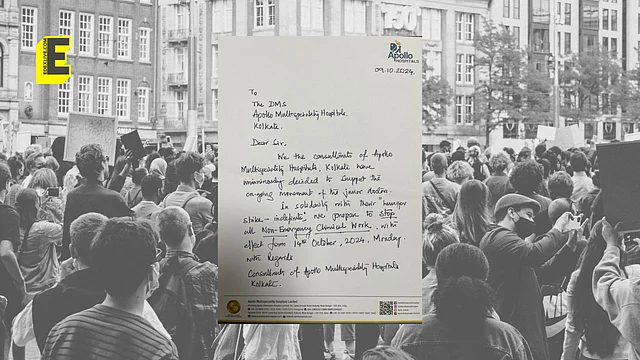 E
Apollo
HOSPITALS
09.10.2024.
To
The DMS
Apollo Multispeciality Hospitals.
Kolkata.
Dear Sir,
We the consultants of Apollo
Multispeciality Hospitals, Kolkata have
unanimously decided to support the
on-going movement of the junior doctors.
In solidarity with their "hunger
strike - indefinite", we propose to stop
all Non-Emergency Clinical Work, with
effect from 14th October, 2024, Monday.
with Regards
Consultants of Apollo Multispeciality Hospitals
Kolkata.
Apollo Multispeciality Hospitals Limited
150